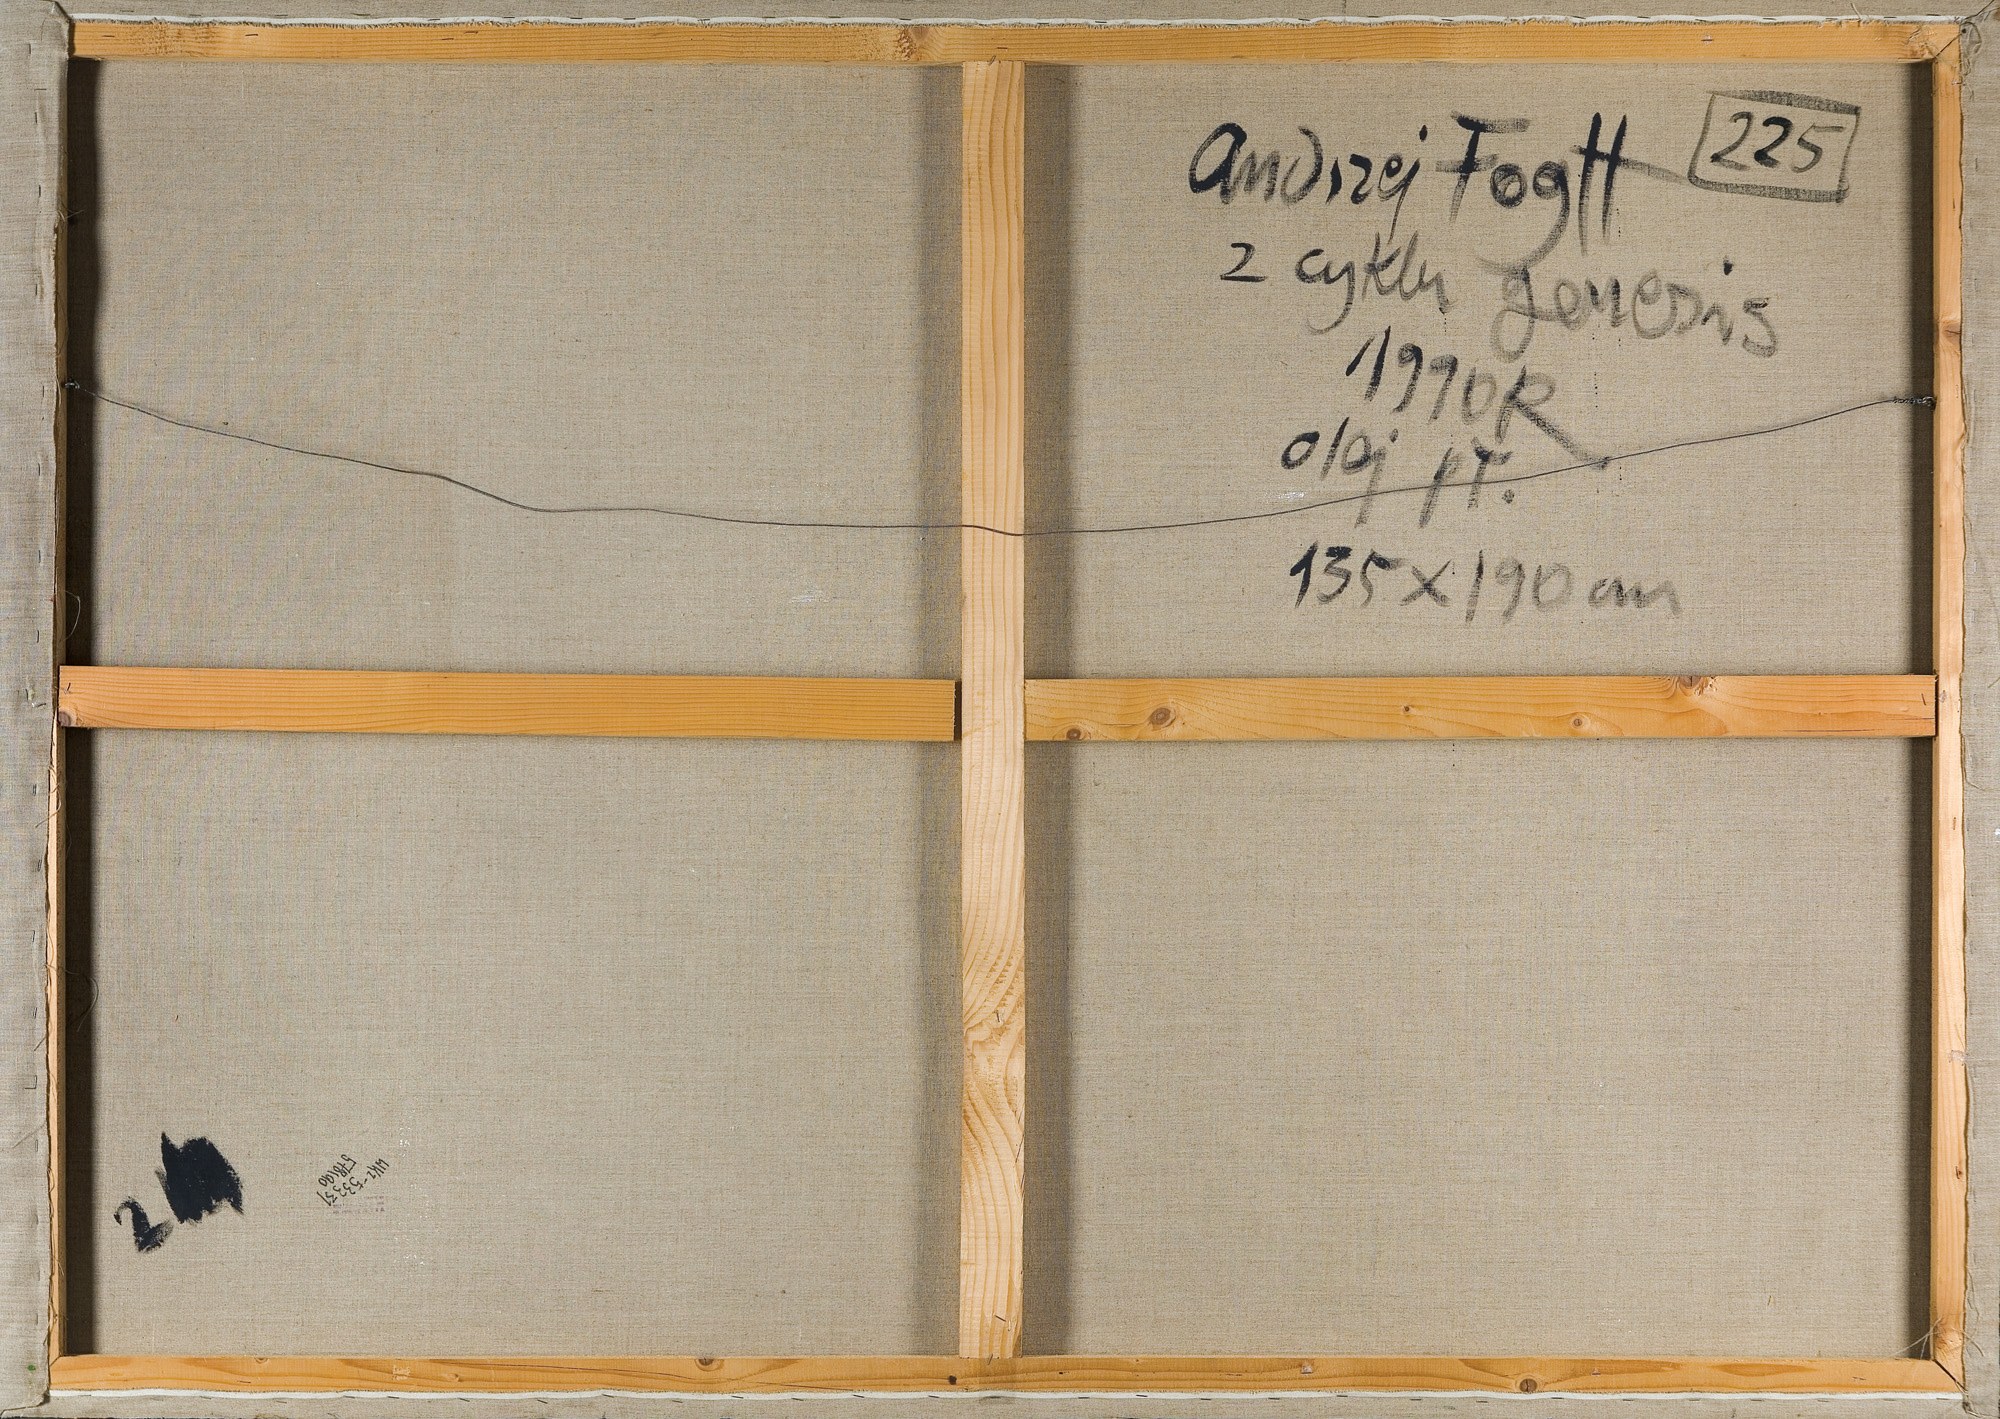 Andrzej Fogtt 225
z cyklu genesis
1990R
olej pł.
135x190 cm
2